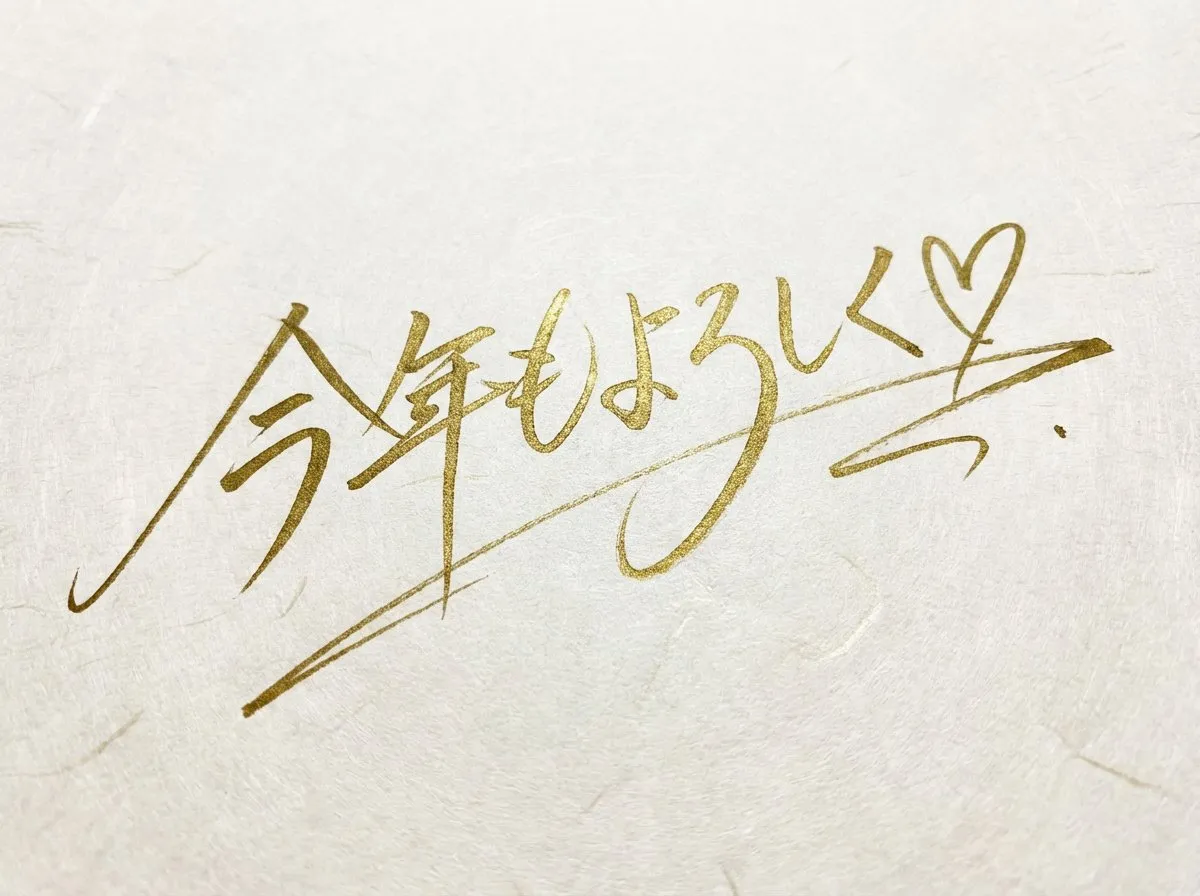 今年もよろしく♡